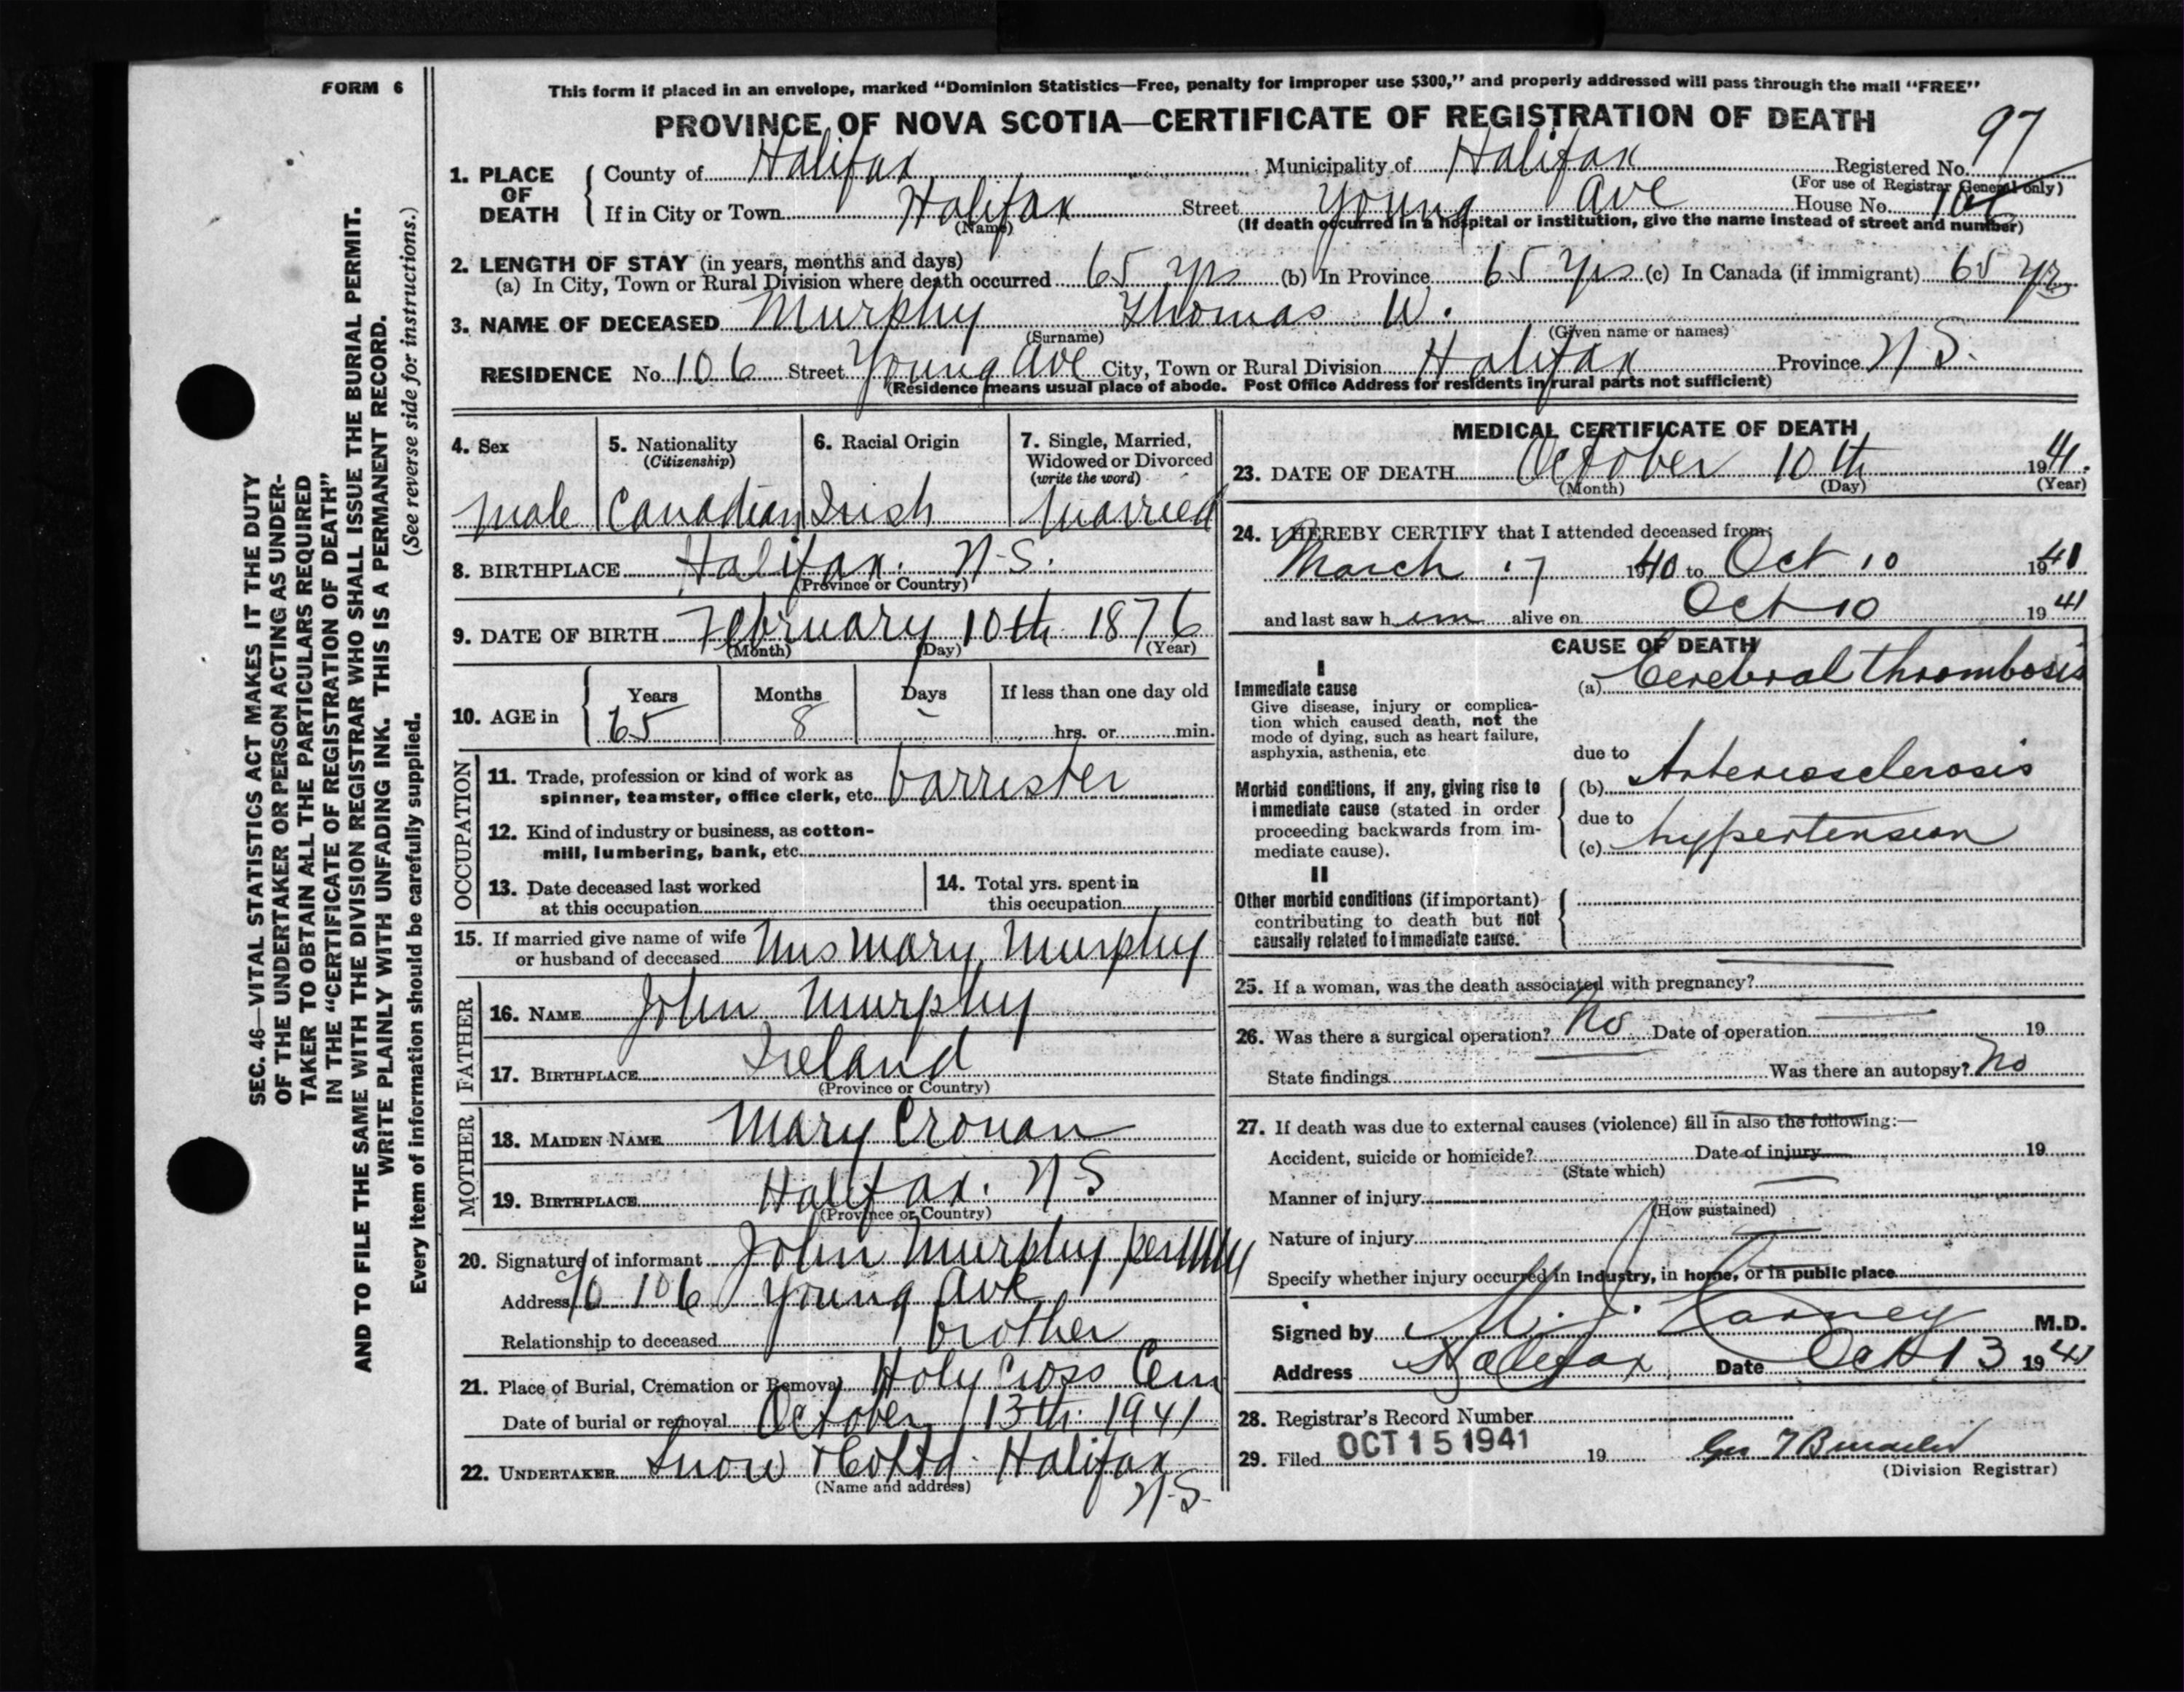 FORM 6
This form if placed in an envelope, marked "Dominion Statistics—Free, penalty for improper use $300," and properly addressed will pass through the mail "FREE"
PROVINCE OF NOVA SCOTIA—CERTIFICATE OF REGISTRATION OF DEATH
97
1. PLACE OF DEATH
County of Halifax Municipality of Halifax Registered No.
(For use of Registrar General only)
If in City or Town Halifax Street Young Ave House No. 106
(Name) (If death occurred in a hospital or institution, give the name instead of street and number)
2. LENGTH OF STAY (in years, months and days)
(a) In City, Town or Rural Division where death occurred 65 yrs (b) In Province 65 yrs (c) In Canada (if immigrant) 65 yr
3. NAME OF DECEASED Murphy Thomas W.
(Surname) (Given name or names)
RESIDENCE No. 106 Street Young Ave City, Town or Rural Division Halifax Province N.S.
(Residence means usual place of abode. Post Office Address for residents in rural parts not sufficient)
4. Sex
male
5. Nationality
(Citizenship)
Canadian
6. Racial Origin
Irish
7. Single, Married,
Widowed or Divorced
(write the word)
Married
8. BIRTHPLACE Halifax. N.S.
(Province or Country)
9. DATE OF BIRTH February 10th 1876
(Month) (Day) (Year)
10. AGE in
Years Months Days If less than one day old
65 8 - hrs. or min.
OCCUPATION
11. Trade, profession or kind of work as
spinner, teamster, office clerk, etc. barrister
12. Kind of industry or business, as cotton-
mill, lumbering, bank, etc.
13. Date deceased last worked
at this occupation
14. Total yrs. spent in
this occupation
15. If married give name of wife
or husband of deceased Mrs Mary Murphy
FATHER
16. NAME John Murphy
17. BIRTHPLACE Ireland
(Province or Country)
MOTHER
18. MAIDEN NAME Mary Cronan
19. BIRTHPLACE Halifax. N S
(Province or Country)
20. Signature of informant John Murphy per
Address c/o 106 Young Ave
Relationship to deceased brother
21. Place of Burial, Cremation or Removal Holy Cross Cem
Date of burial or removal October 13th 1941
22. UNDERTAKER Snow & Co Ltd. Halifax
(Name and address) N.S.
MEDICAL CERTIFICATE OF DEATH
23. DATE OF DEATH October 10th 1941.
(Month) (Day) (Year)
24. I HEREBY CERTIFY that I attended deceased from:
March 17 1940 to Oct 10 1941
and last saw him alive on Oct 10 1941
CAUSE OF DEATH
I
Immediate cause
Give disease, injury or complica-
tion which caused death, not the
mode of dying, such as heart failure,
asphyxia, asthenia, etc
(a) Cerebral thrombosis
due to
Morbid conditions, if any, giving rise to
immediate cause (stated in order
proceeding backwards from im-
mediate cause).
(b) Arteriosclerosis
due to
(c) hypertension
II
Other morbid conditions (if important)
contributing to death but not
causally related to immediate cause.
25. If a woman, was the death associated with pregnancy?
26. Was there a surgical operation? No Date of operation 19
State findings Was there an autopsy? No
27. If death was due to external causes (violence) fill in also the following:—
Accident, suicide or homicide? Date of injury 19
(State which)
Manner of injury
(How sustained)
Nature of injury
Specify whether injury occurred in industry, in home, or in public place
Signed by M. J. Carney M.D.
Address Halifax Date Oct 13 1941
28. Registrar's Record Number
29. Filed OCT 15 1941 19
(Division Registrar)
SEC. 46—VITAL STATISTICS ACT MAKES IT THE DUTY
OF THE UNDERTAKER OR PERSON ACTING AS UNDER-
TAKER TO OBTAIN ALL THE PARTICULARS REQUIRED
IN THE "CERTIFICATE OF REGISTRATION OF DEATH"
AND TO FILE THE SAME WITH THE DIVISION REGISTRAR WHO SHALL ISSUE THE BURIAL PERMIT.
WRITE PLAINLY WITH UNFADING INK. THIS IS A PERMANENT RECORD.
(See reverse side for instructions.)
Every item of information should be carefully supplied.